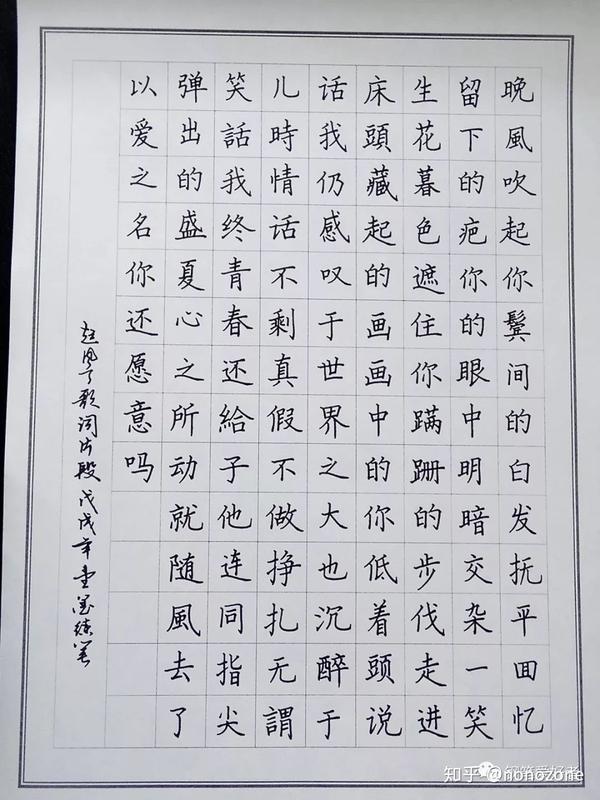 晚風吹起你鬓间的白发抚平回忆
留下的疤你的眼中明暗交杂一笑
生花暮色遮住你蹒跚的步伐走进
床頭藏起的画画中的你低着頭说
话我仍感叹于世界之大也沉醉于
儿時情话不剩真假不做挣扎无謂
笑話我终青春还給子他连同指尖
弹出的盛夏心之所动就随風去了
以爱之名你还愿意吗
起风了歌词片段戊戌年墨练笔
钢笔爱好者
知乎 @nonozone